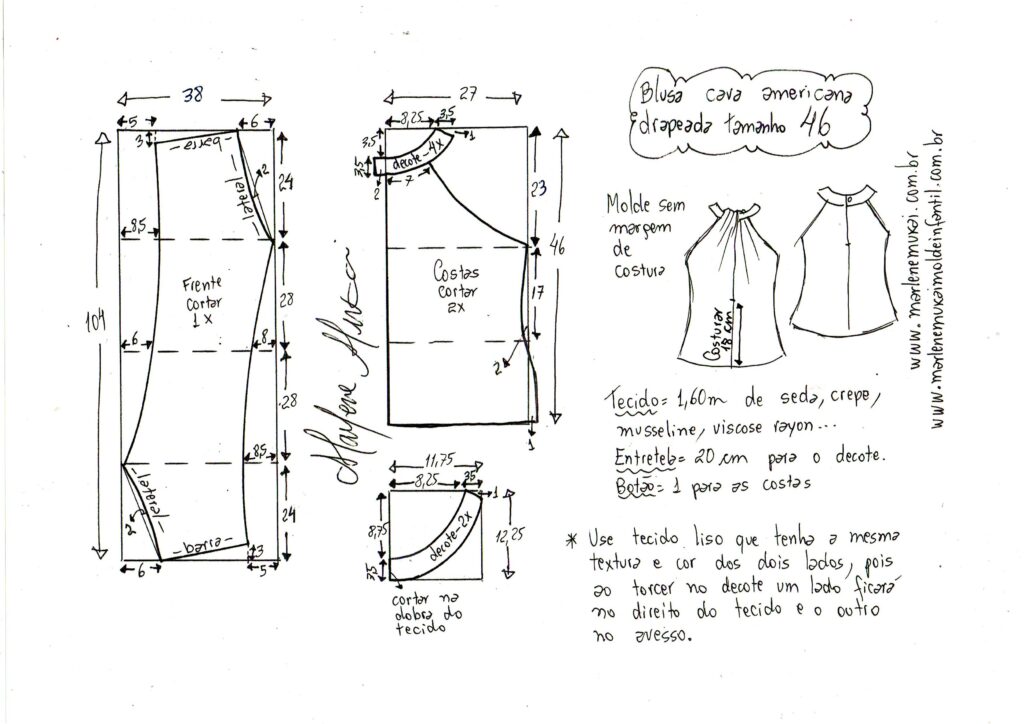 Blusa cava americana
drapeada tamanho 46
38
5
6
3
barra
lateral
2
24
8,5
Frente
cortar
1x
28
104
6
8
28
8,5
lateral
2
24
barra
3
6
5
Marlene Mukai
27
8,25
3,5
1
3,5
3,5
decote - 4x
2
7
23
46
Costas
cortar
2x
17
2
1
11,75
8,25
3,5
1
8,75
decote - 2x
12,25
3,5
cortar na
dobra do
tecido
Molde sem
margem
de
costura
Costurar
18 cm
www.marlenemukai.com.br
www.marlenemukaimoldeinfantil.com.br
Tecido = 1,60m de seda, crepe,
musseline, viscose rayon...
Entretela = 20 cm para o decote.
Botão = 1 para as costas
* Use tecido liso que tenha a mesma
textura e cor dos dois lados, pois
ao torcer no decote um lado ficará
no direito do tecido e o outro
no avesso.